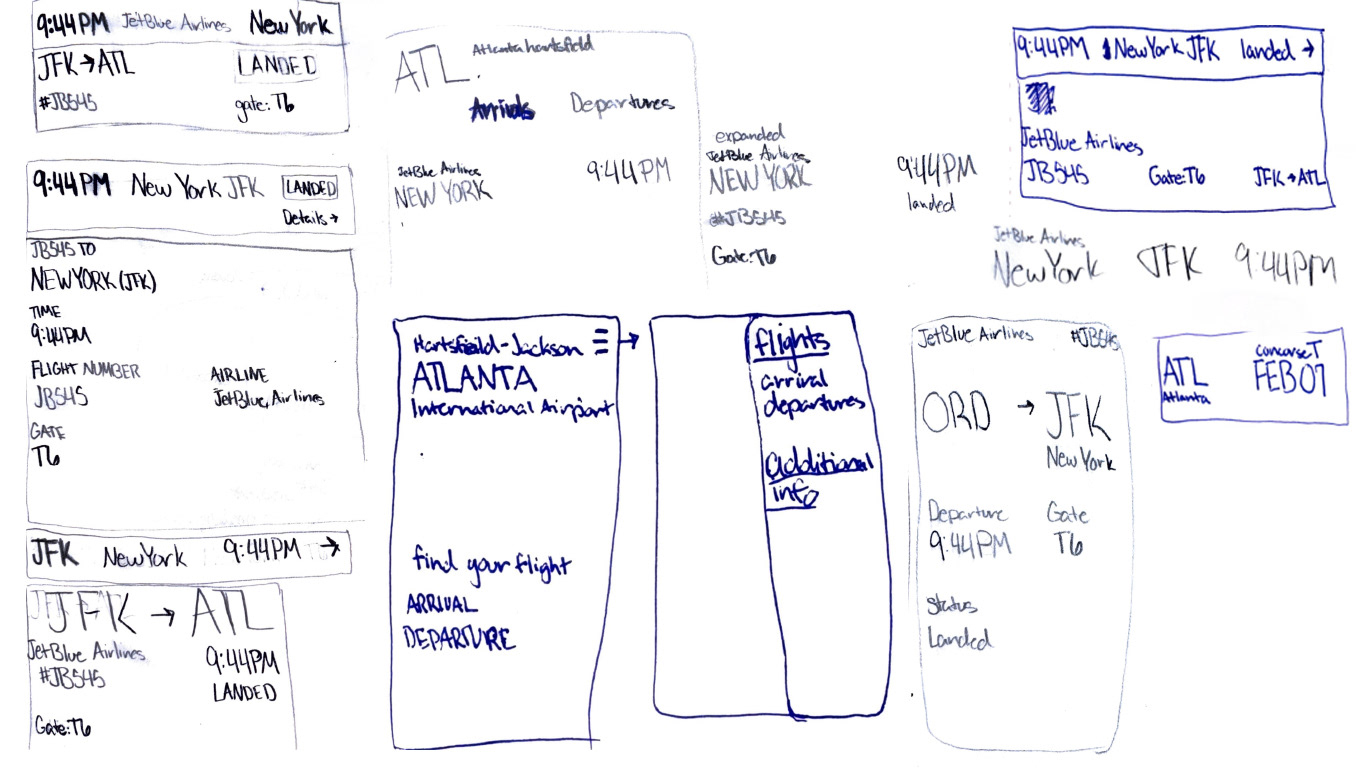 9:44PM JetBlue Airlines New York
JFK→ATL LANDED
#JB545 gate: T6
9:44PM New York JFK LANDED
Details→
JB545 TO
NEW YORK (JFK)
TIME
9:44PM
FLIGHT NUMBER AIRLINE
JB545 JetBlue Airlines
GATE
T6
JFK New York 9:44PM →
JFK → ATL
JetBlue Airlines 9:44PM
#JB545 LANDED
Gate: T6
ATL Atlanta hartsfield
Arrivals Departures
JetBlue Airlines 9:44PM
NEW YORK
expanded
JetBlue Airlines 9:44PM
NEW YORK landed
#JB545
Gate: T6
Hartsfeild-Jackson
ATLANTA
International Airport
find your flight
ARRIVAL
DEPARTURE
flights
arrival
departures
additional
info
9:44PM New York JFK landed →
JetBlue Airlines
JB545 Gate: T6 JFK→ATL
JetBlue Airlines
New York JFK 9:44PM
JetBlue Airlines #JB545
ORD → JFK
New York
Departure Gate
9:44PM T6
Status
Landed
ATL concorse T
Atlanta FEB 07